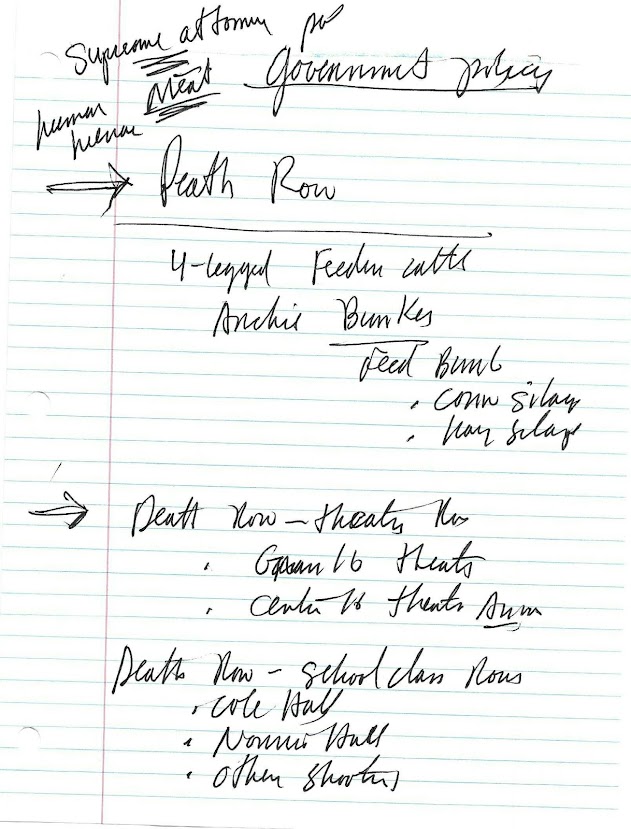 Supreme attorney
Meat Government policy
human
Death Row
4-legged Feeder cattle
Archie Bunker
Feed Bunk
. corn silage
. hay silage
Death Row - theatre Row
. 16 theatre
. Century 16 theatre Aurora
Death Row - school class Rows
. Cole Hall
. Norris Hall
. other shooters